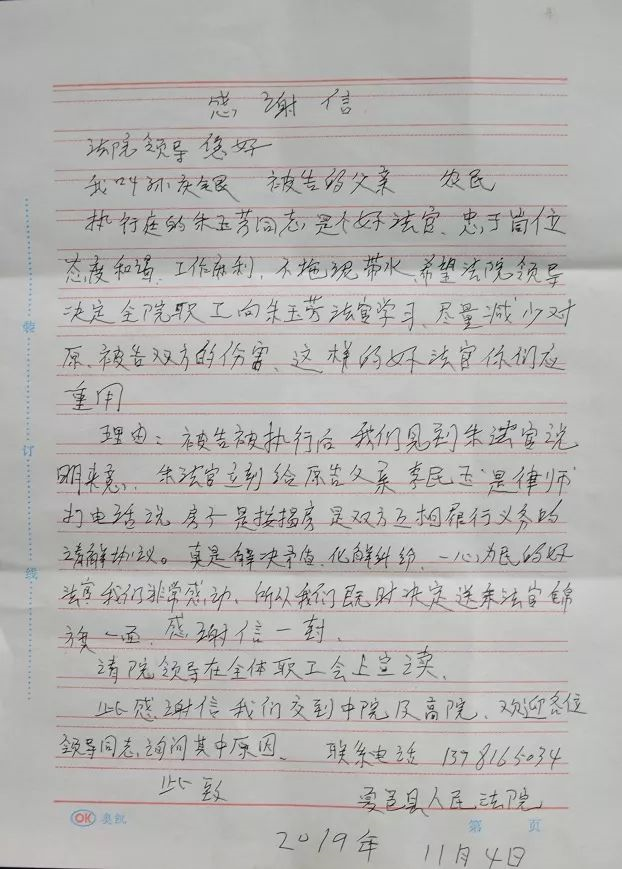 感谢信
法院领导您好
我叫孙庆银 被告的父亲 农民
执行庭的朱玉芳同志是个好法官、忠于岗位
态度和谒、工作麻利、不拖泥带水、希望法院领导
决定全院职工向朱玉芳法官学习、尽量减少对
原、被告双方的伤害、这样的好法官你们应
重用
理由：被告被执行后 我们见到朱法官说
明来意、朱法官立刻给原告父亲李民玉“是律师”
打电话说 房子是按揭房是双方互相履行义务的
请解协议。真是解决矛盾、化解纠纷、一心为民的好
法官我们非常感动、所以我们既时决定送朱法官锦
旗一面、感谢信一封、
请院领导在全体职工会上宣读、
此感谢信我们交到中院及高院、欢迎各位
领导同志询问其中原因、 联系电话
此致 夏邑县人民法院
2019年 11月4日
装
订
线
OK 奥凯
第 页